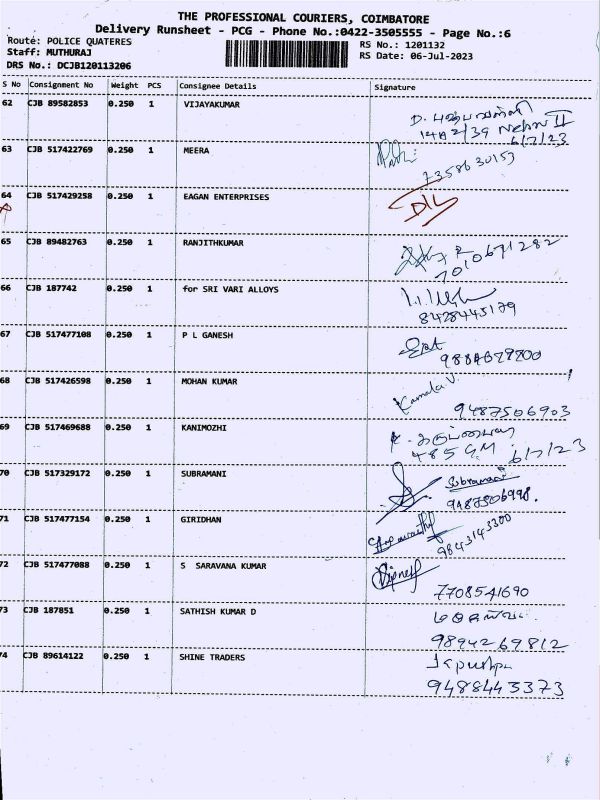 THE PROFESSIONAL COURIERS, COIMBATORE
Delivery Runsheet - PCG - Phone No.:0422-3505555 - Page No.:6
Route: POLICE QUATERES
Staff: MUTHURAJ
DRS No.: DCJB120113206
RS No.: 1201132
RS Date: 06-Jul-2023
S No Consignment No Weight PCS Consignee Details Signature
62 CJB 89582853 0.250 1 VIJAYAKUMAR
6/7/23
63 CJB 517422769 0.250 1 MEERA
7358630153
64 CJB 517429258 0.250 1 EAGAN ENTERPRISES
D/L
65 CJB 89482763 0.250 1 RANJITHKUMAR
7010671282
66 CJB 187742 0.250 1 for SRI VARI ALLOYS
8428443179
67 CJB 517477108 0.250 1 P L GANESH
68 CJB 517426598 0.250 1 MOHAN KUMAR
Kamala V.
9487506903
69 CJB 517469688 0.250 1 KANIMOZHI
485 GM 6/7/23
70 CJB 517329172 0.250 1 SUBRAMANI
Subramani
9487506998.
71 CJB 517477154 0.250 1 GIRIDHAN
9843143300
72 CJB 517477088 0.250 1 S SARAVANA KUMAR
7708541690
73 CJB 187851 0.250 1 SATHISH KUMAR D
9894269812
74 CJB 89614122 0.250 1 SHINE TRADERS
9488443373